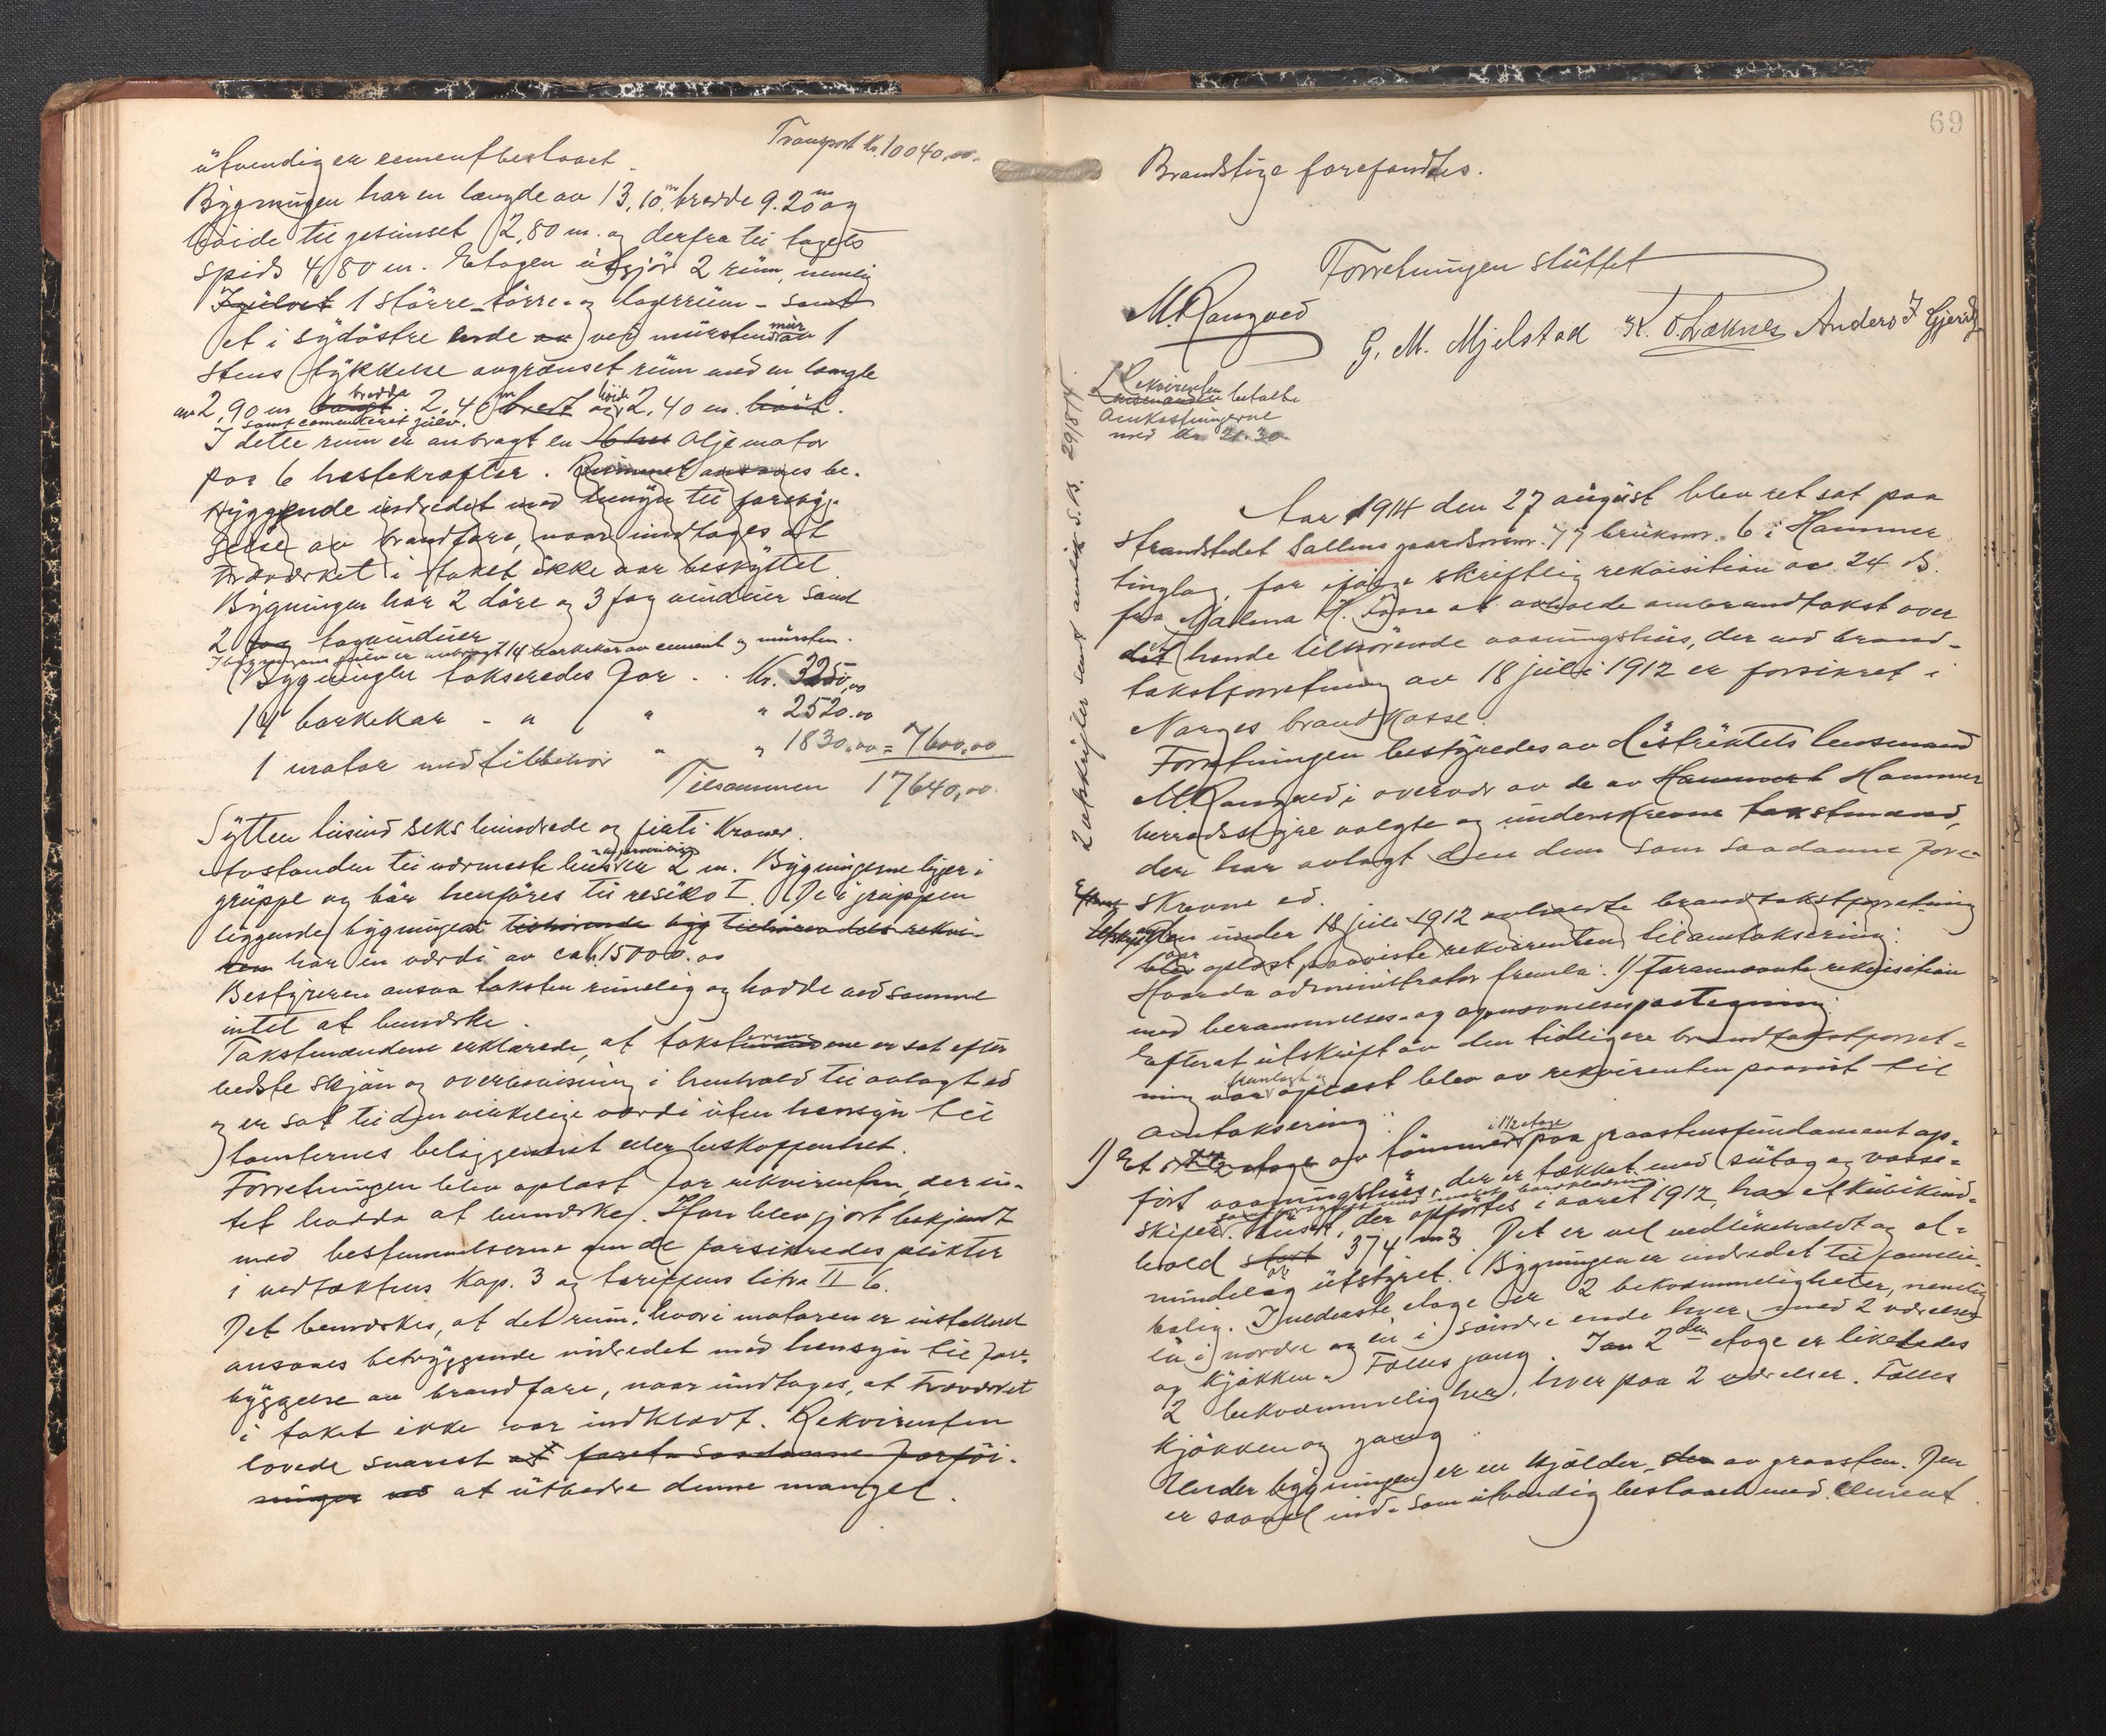 Transport Kr. 10040,00.
utvendig er cementbeslaaet.
Bygningen har en længde av 13,10 m, bredde 9.20 m og
höide til gesimset 2,80 m. og derfra til tagets
spids 4,80 m. Etagen utgjör 2 rum, nemlig
1 större törre- og lagerrum - samt
et i sydöstre ende ved murstens mur av 1
stens tykkelse avgrænset rum med en længde
av 2,90 m bredde 2,40 m höide 2,40 m.
samt cementeret gulv.
I dette rum er anbragt en Oljemotor
paa 6 hestekræfter. Rummet ansaaes be-
tryggende indredet med hensyn til forebyg-
gelse av brandfare, naar undtages at
træverket i taket ikke var beskyttet
Bygningen har 2 döre og 3 fag vinduer samt
2 tagvinduer
I bygningens gulv er anbragt 14 barkekar av cement og mursten.
Bygningen takseredes for . . Kr. 3250,00
14 barkekar - " " " 2520.00
1 motor med tilbehör " " 1830,00 = 7600,00
Tilsammen 17640,00.
Sytten tusind seks hundrede og firti Kroner.
Avstanden til nærmeste hus er 2 m. Bygningerne ligger i
gruppe og bör henföres til resiko I. De i gruppen
liggende bygninger
har en værdi av ca kr. 15000.00
Bestyreren ansaa taksten rimelig og hadde ved samme
intet at bemerke.
Takstmændene erklærede, at taksterne er sat efter
bedste skjön og overbevisning i henhold til avlagt ed
og er sat til den virkelige værdi uten hensyn til
tomternes beliggenhet eller beskaffenhet.
Forretningen blev oplæst for rekvirenten, der in-
tet hadde at bemerke. Han blev gjort bekjendt
med bestemmelserne om de forsikredes plikter
i vedtægtens Kap. 3 og tariffens litra II 6.
Det bemerkes, at det rum, hvori motoren er installeret
ansaaes betryggende indredet med hensyn til fore-
byggelse av brandfare, naar undtages, at træverket
i taket ikke var indklædt. Rekvirenten
lovede snarest at foreta saadanne forföi-
ninger at utbedre denne mangel.
69
Brandstige forefandtes.
Forretningen sluttet
M. Rongved
G. M. Mjelstad K. O. Loknes Anders J Gjerde
Rekvirenten betalte
omkostningerne
med Kr 21.30
2 avskrifter sendt 29/8 14.
Aar 1914 den 27 august blev ret sat paa
strandstedet Sallens gaardsnumr. 77 bruksnr. 6 i Hammer
tinglag, for ifölge skriftlig rekvisition av 24 ds.
fra Malena H. at avholde ombrandtakst over
det hende tilhörende vaaningshus, der ved brand-
takstforretning av 18 juli 1912 er forsikret i
Norges brandkasse.
Forretningen bestyredes av distriktets lensmand
M. Rongved i overvær av de av Hammer
herredsstyre valgte og underskrevne takstmænd,
der har avlagt den dem som saadanne fore-
skrevne ed.
under 18 juli 1912 avholdte brandtakstforretning
var oplæst paaviste rekvirenten til omtaksering:
administrator fremla: 1) Forannævnte rekvisition
med berammelses- og paategning.
Efterat utskrift av den tidligere brandtakstforret-
ning var fremlagt og oplæst blev av rekvirenten paavist til
omtaksering:
1) Et i 1½ etage av tömmer paa graastensfundament op-
fört vaaningshus, der er tækket med sutag og vosse-
skifer. Huset, der opförtes i aaret 1912, har et kubikind-
hold stort 374 m3. Det er vel vedlikeholdt og al-
mindelig utstyret. Bygningen er indredet til familie-
bolig. I nederste etage er 2 bekvemmeligheter, nemlig
en i nordre og en i söndre ende hver med 2 værelser
og kjökken. Fælles gang. I 2den etage er likeledes
2 bekvemmeligheter, hver paa 2 værelser. Fælles
kjökken og gang.
Under bygningen er en kjælder av graasten. Den
er saavel ind- som utvendig beslaaet med cement.